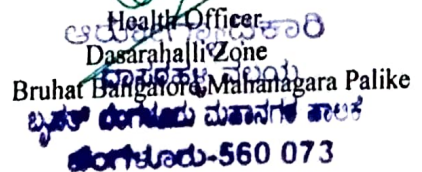 Health Officer
ಆರೋಗ್ಯಾಧಿಕಾರಿ
Dasarahalli Zone
ದಾಸರಹಳ್ಳಿ ವಲಯ
Bruhat Bangalore Mahanagara Palike
ಬೃಹತ್ ಬೆಂಗಳೂರು ಮಹಾನಗರ ಪಾಲಿಕೆ
ಬೆಂಗಳೂರು-560 073